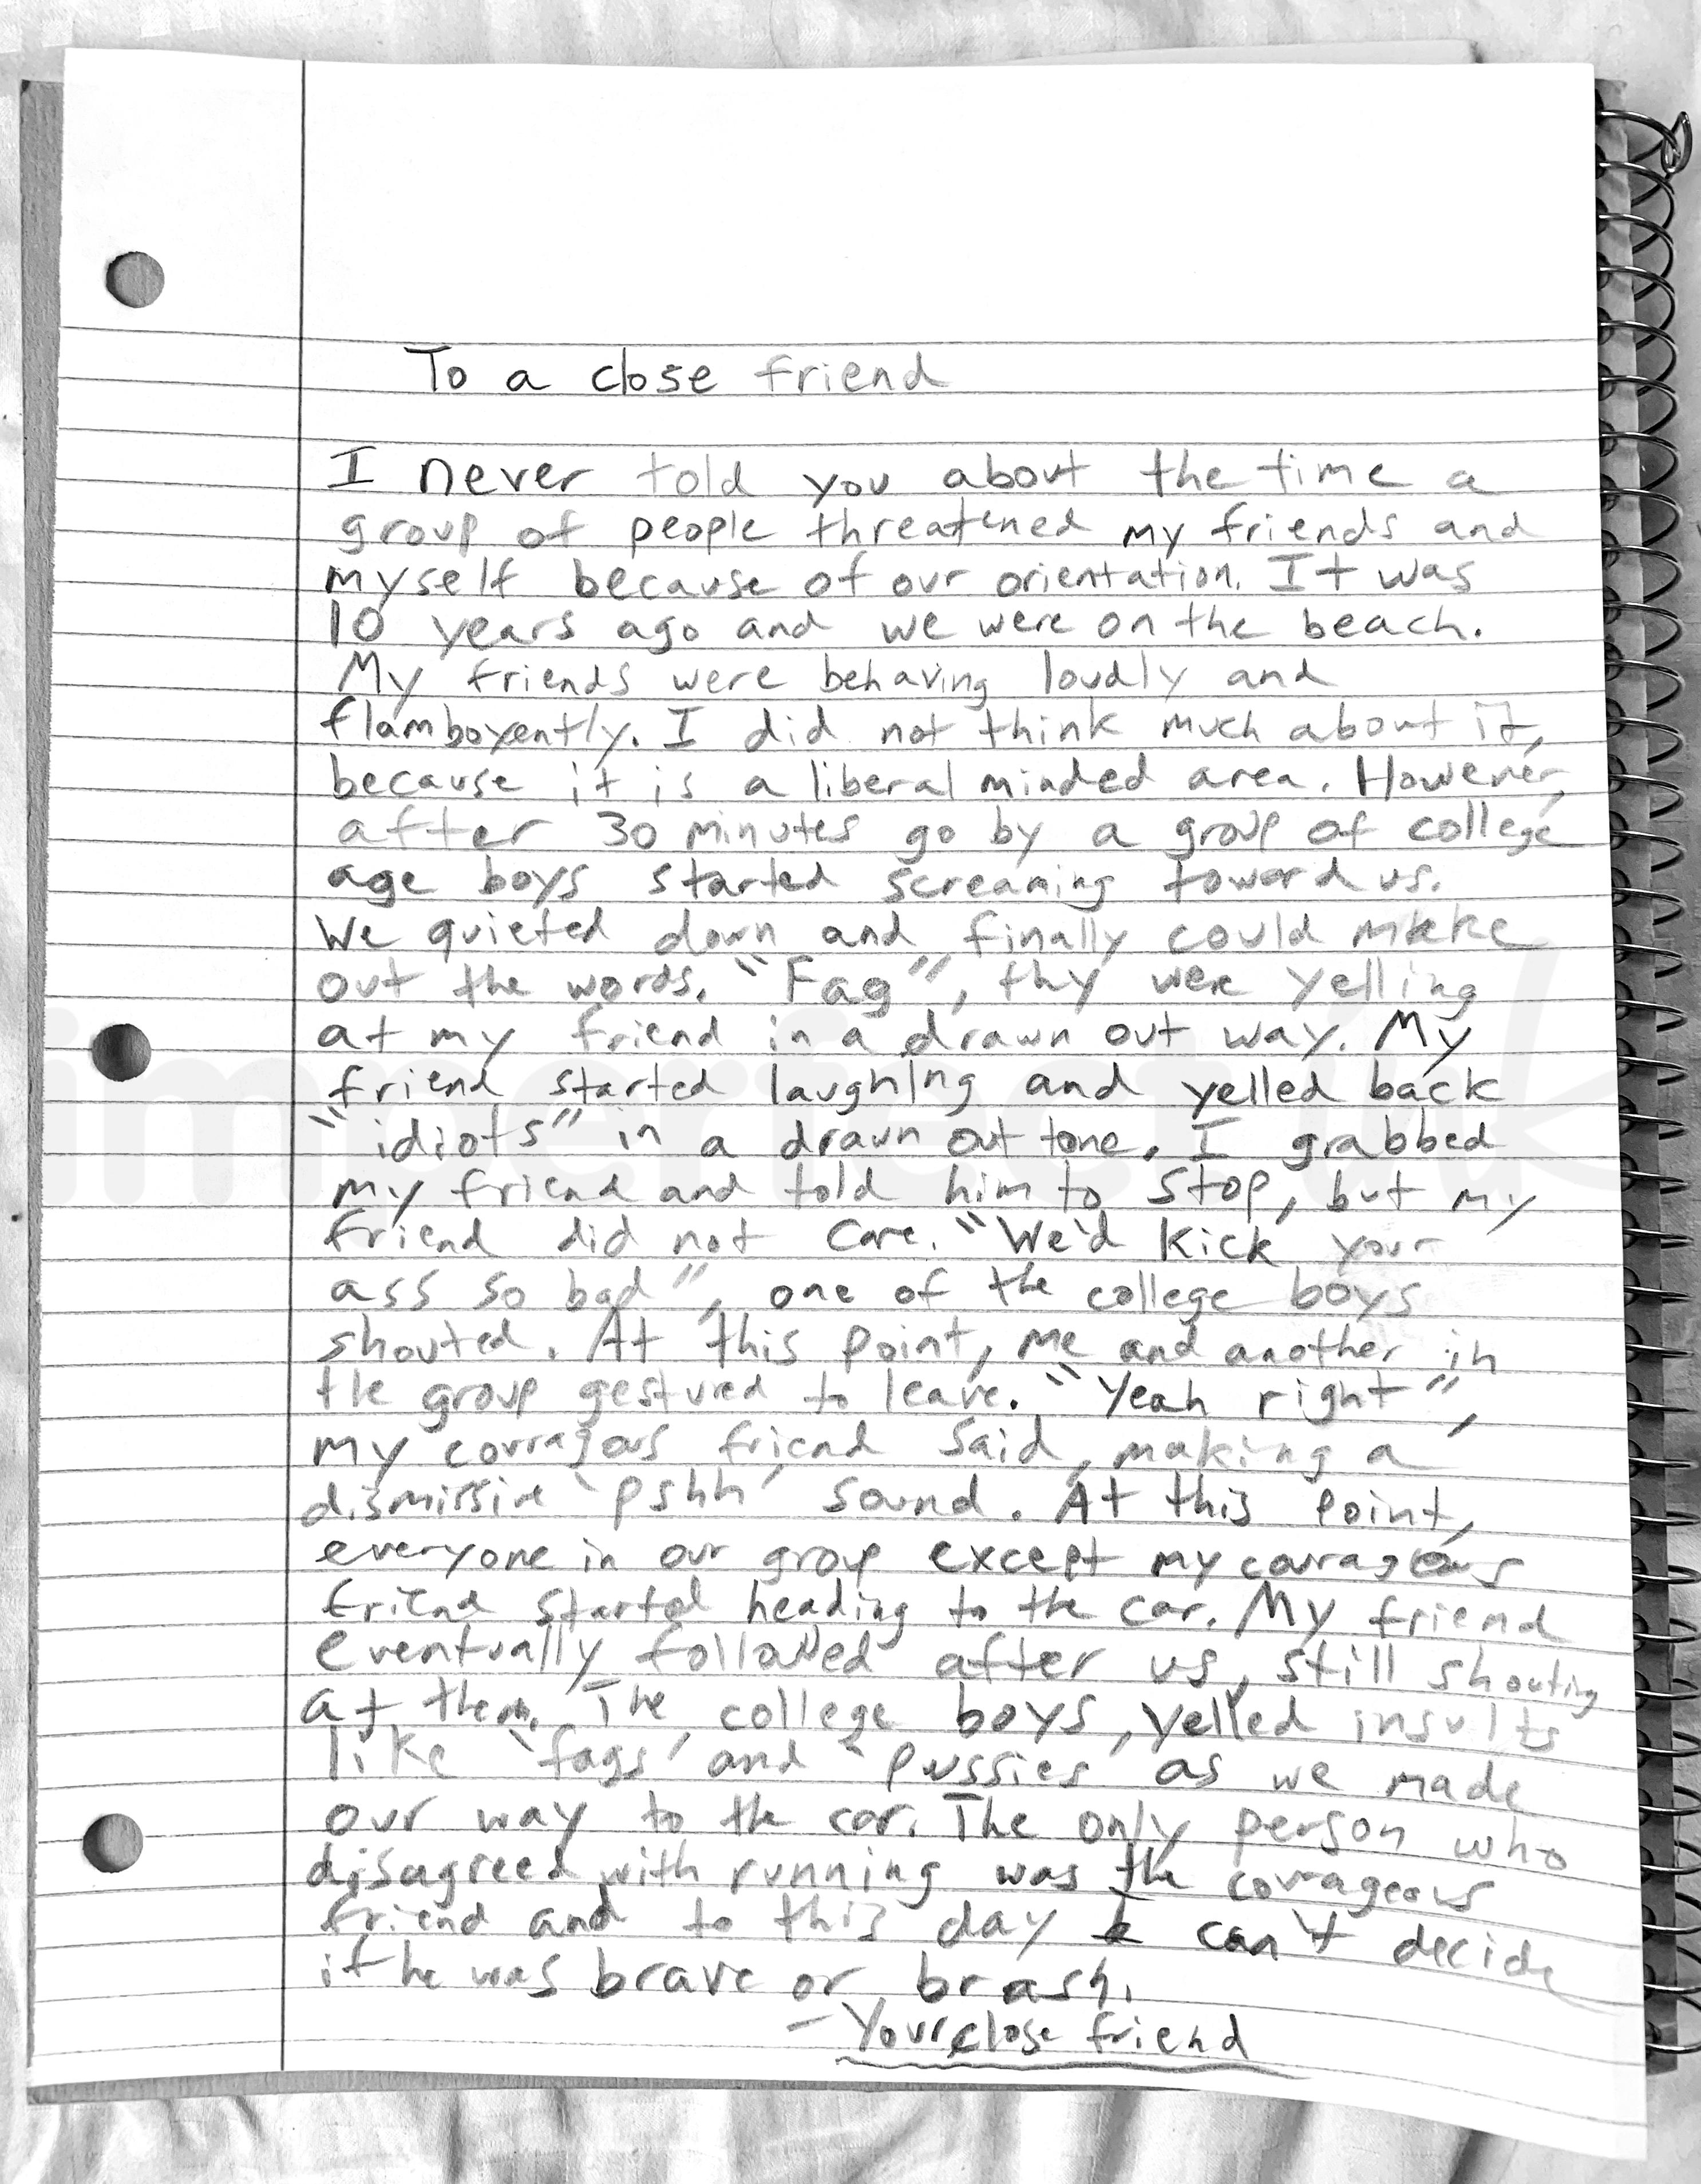 To a close friend
I never told you about the time a
group of people threatened my friends and
myself because of our orientation. It was
10 years ago and we were on the beach.
My friends were behaving loudly and
flamboyently. I did not think much about it,
because it is a liberal minded area. However,
after 30 minutes go by a group of college
age boys started screaming toward us.
We quieted down and finally could make
out the words. "Fag", thy were yelling
at my friend in a drawn out way. My
friend started laughing and yelled back
"idiots" in a drawn out tone. I grabbed
my friend and told him to stop, but my
friend did not care. "We'd kick your
ass so bad", one of the college boys
shouted. At this point, me and another in
the group gestured to leave. "Yeah right",
my couragous friend said, making a
dismissive 'pshh' sound. At this point,
everyone in our group except my courageous
friend started heading to the car. My friend
eventually followed after us, still shouting
at them. The college boys, yelled insults
like 'fags' and 'pussies' as we made
our way to the car. The only person who
disagreed with running was the courageous
friend and to this day I can't decide
if he was brave or brash.
- Your close friend
imperfect uk